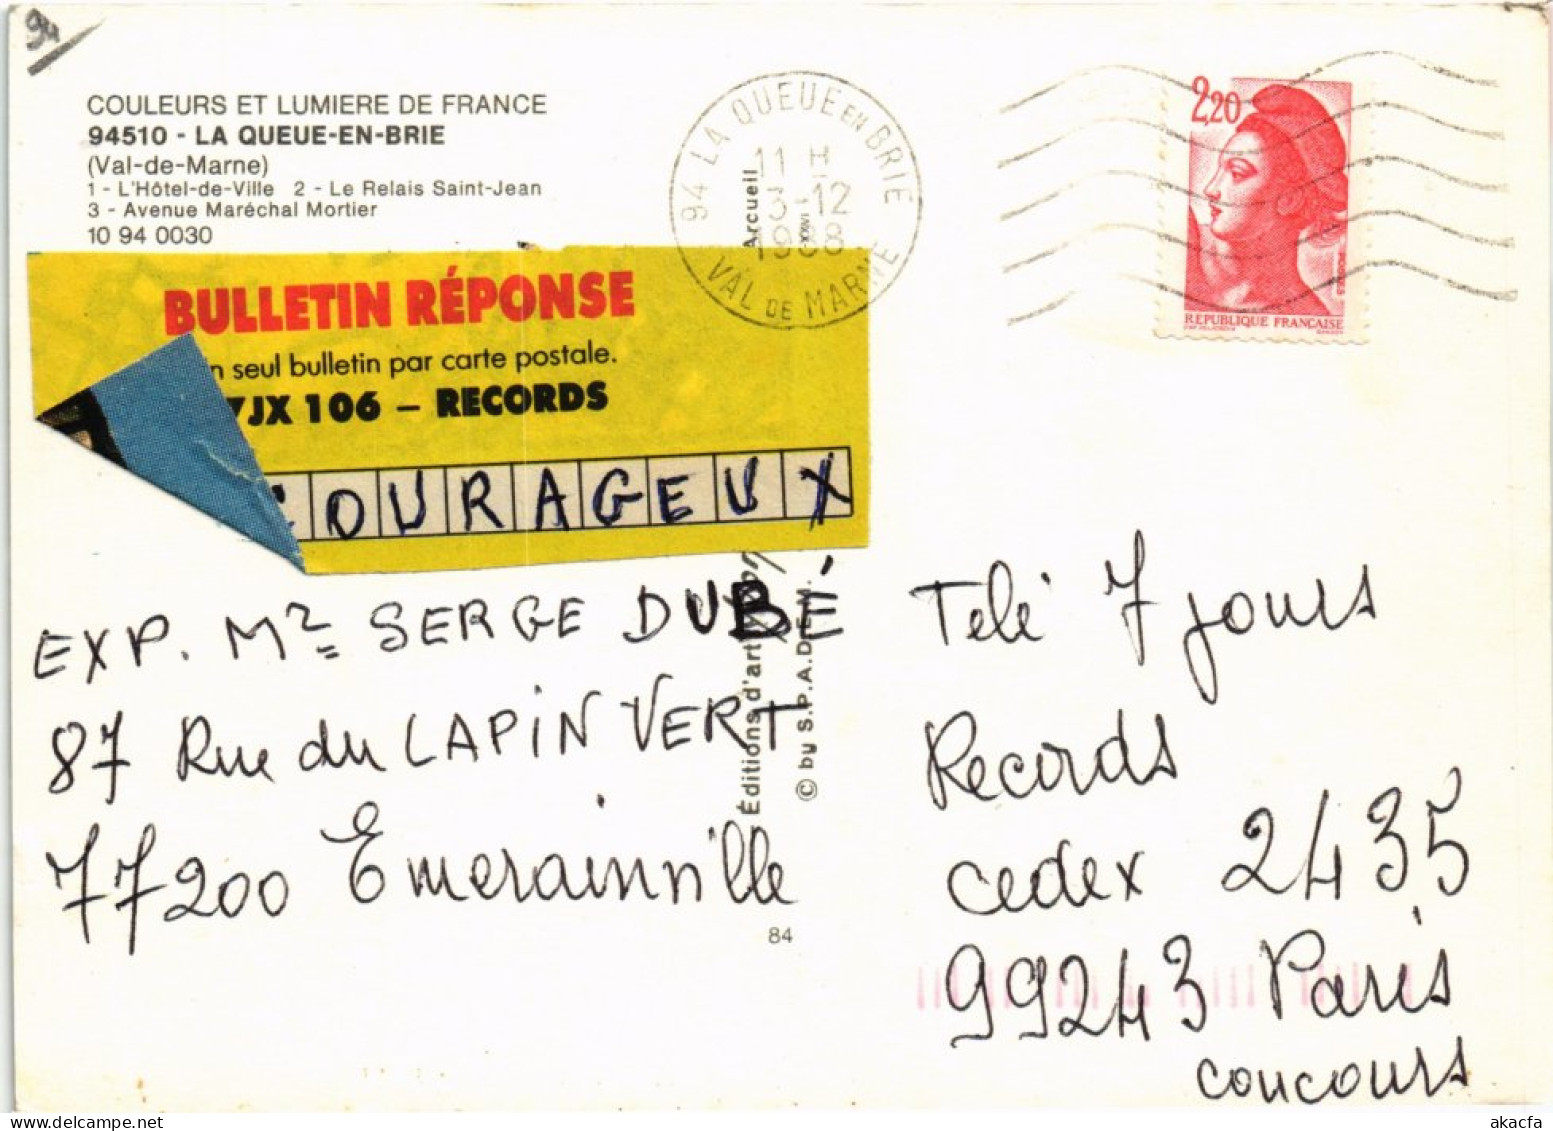 94
COULEURS ET LUMIERE DE FRANCE
94510 - LA QUEUE-EN-BRIE
(Val-de-Marne)
1 - L'Hôtel-de-Ville 2 - Le Relais Saint-Jean
3 - Avenue Maréchal Mortier
10 94 0030
94 LA QUEUE EN BRIE
11 H
3-12
1988
VAL DE MARNE
2,20
POSTES
REPUBLIQUE FRANÇAISE
BULLETIN RÉPONSE
n seul bulletin par carte postale.
7JX 106 – RECORDS
COURAGEUX
EXP. Mr SERGE DUBÉ
87 Rue du LAPIN VERT
77200 Emerainville
Arcueil
Éditions d'art
© by S.P.A.D.E.M.
84
Télé 7 jours
Records
cedex 2435
99243 Paris
concours
akacfa